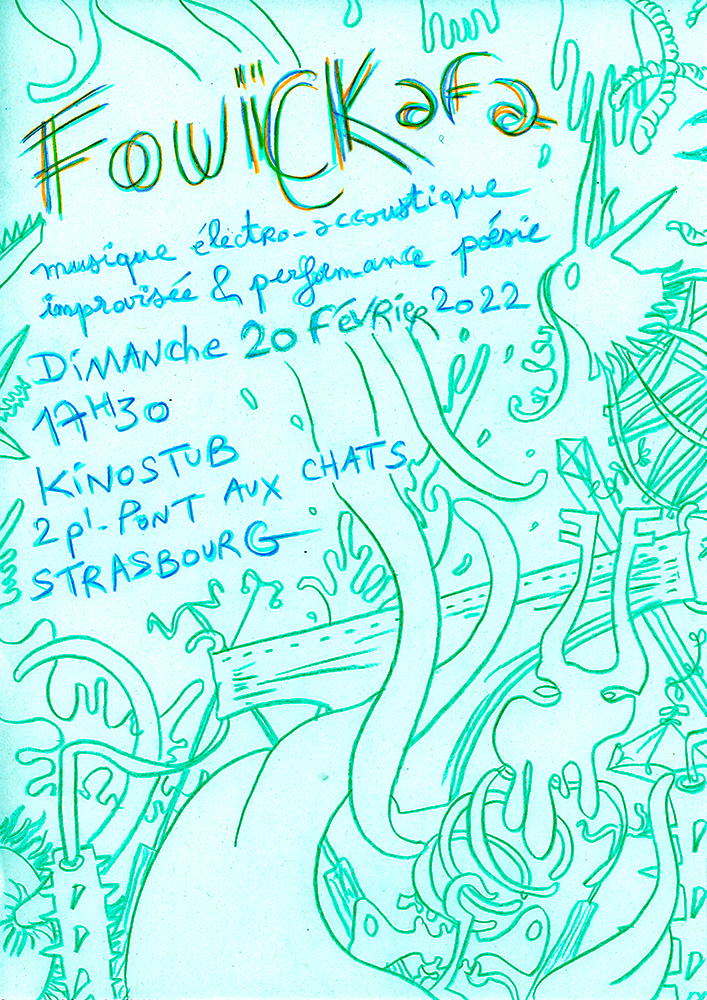 FOWÏCKafa
musique électro-accoustique
improvisée & performance poésie
DiMANche 20 FévRieR 2022
17H30
KiNOSTUB
2 pl. PONT AUX CHATS
STRASBOURG